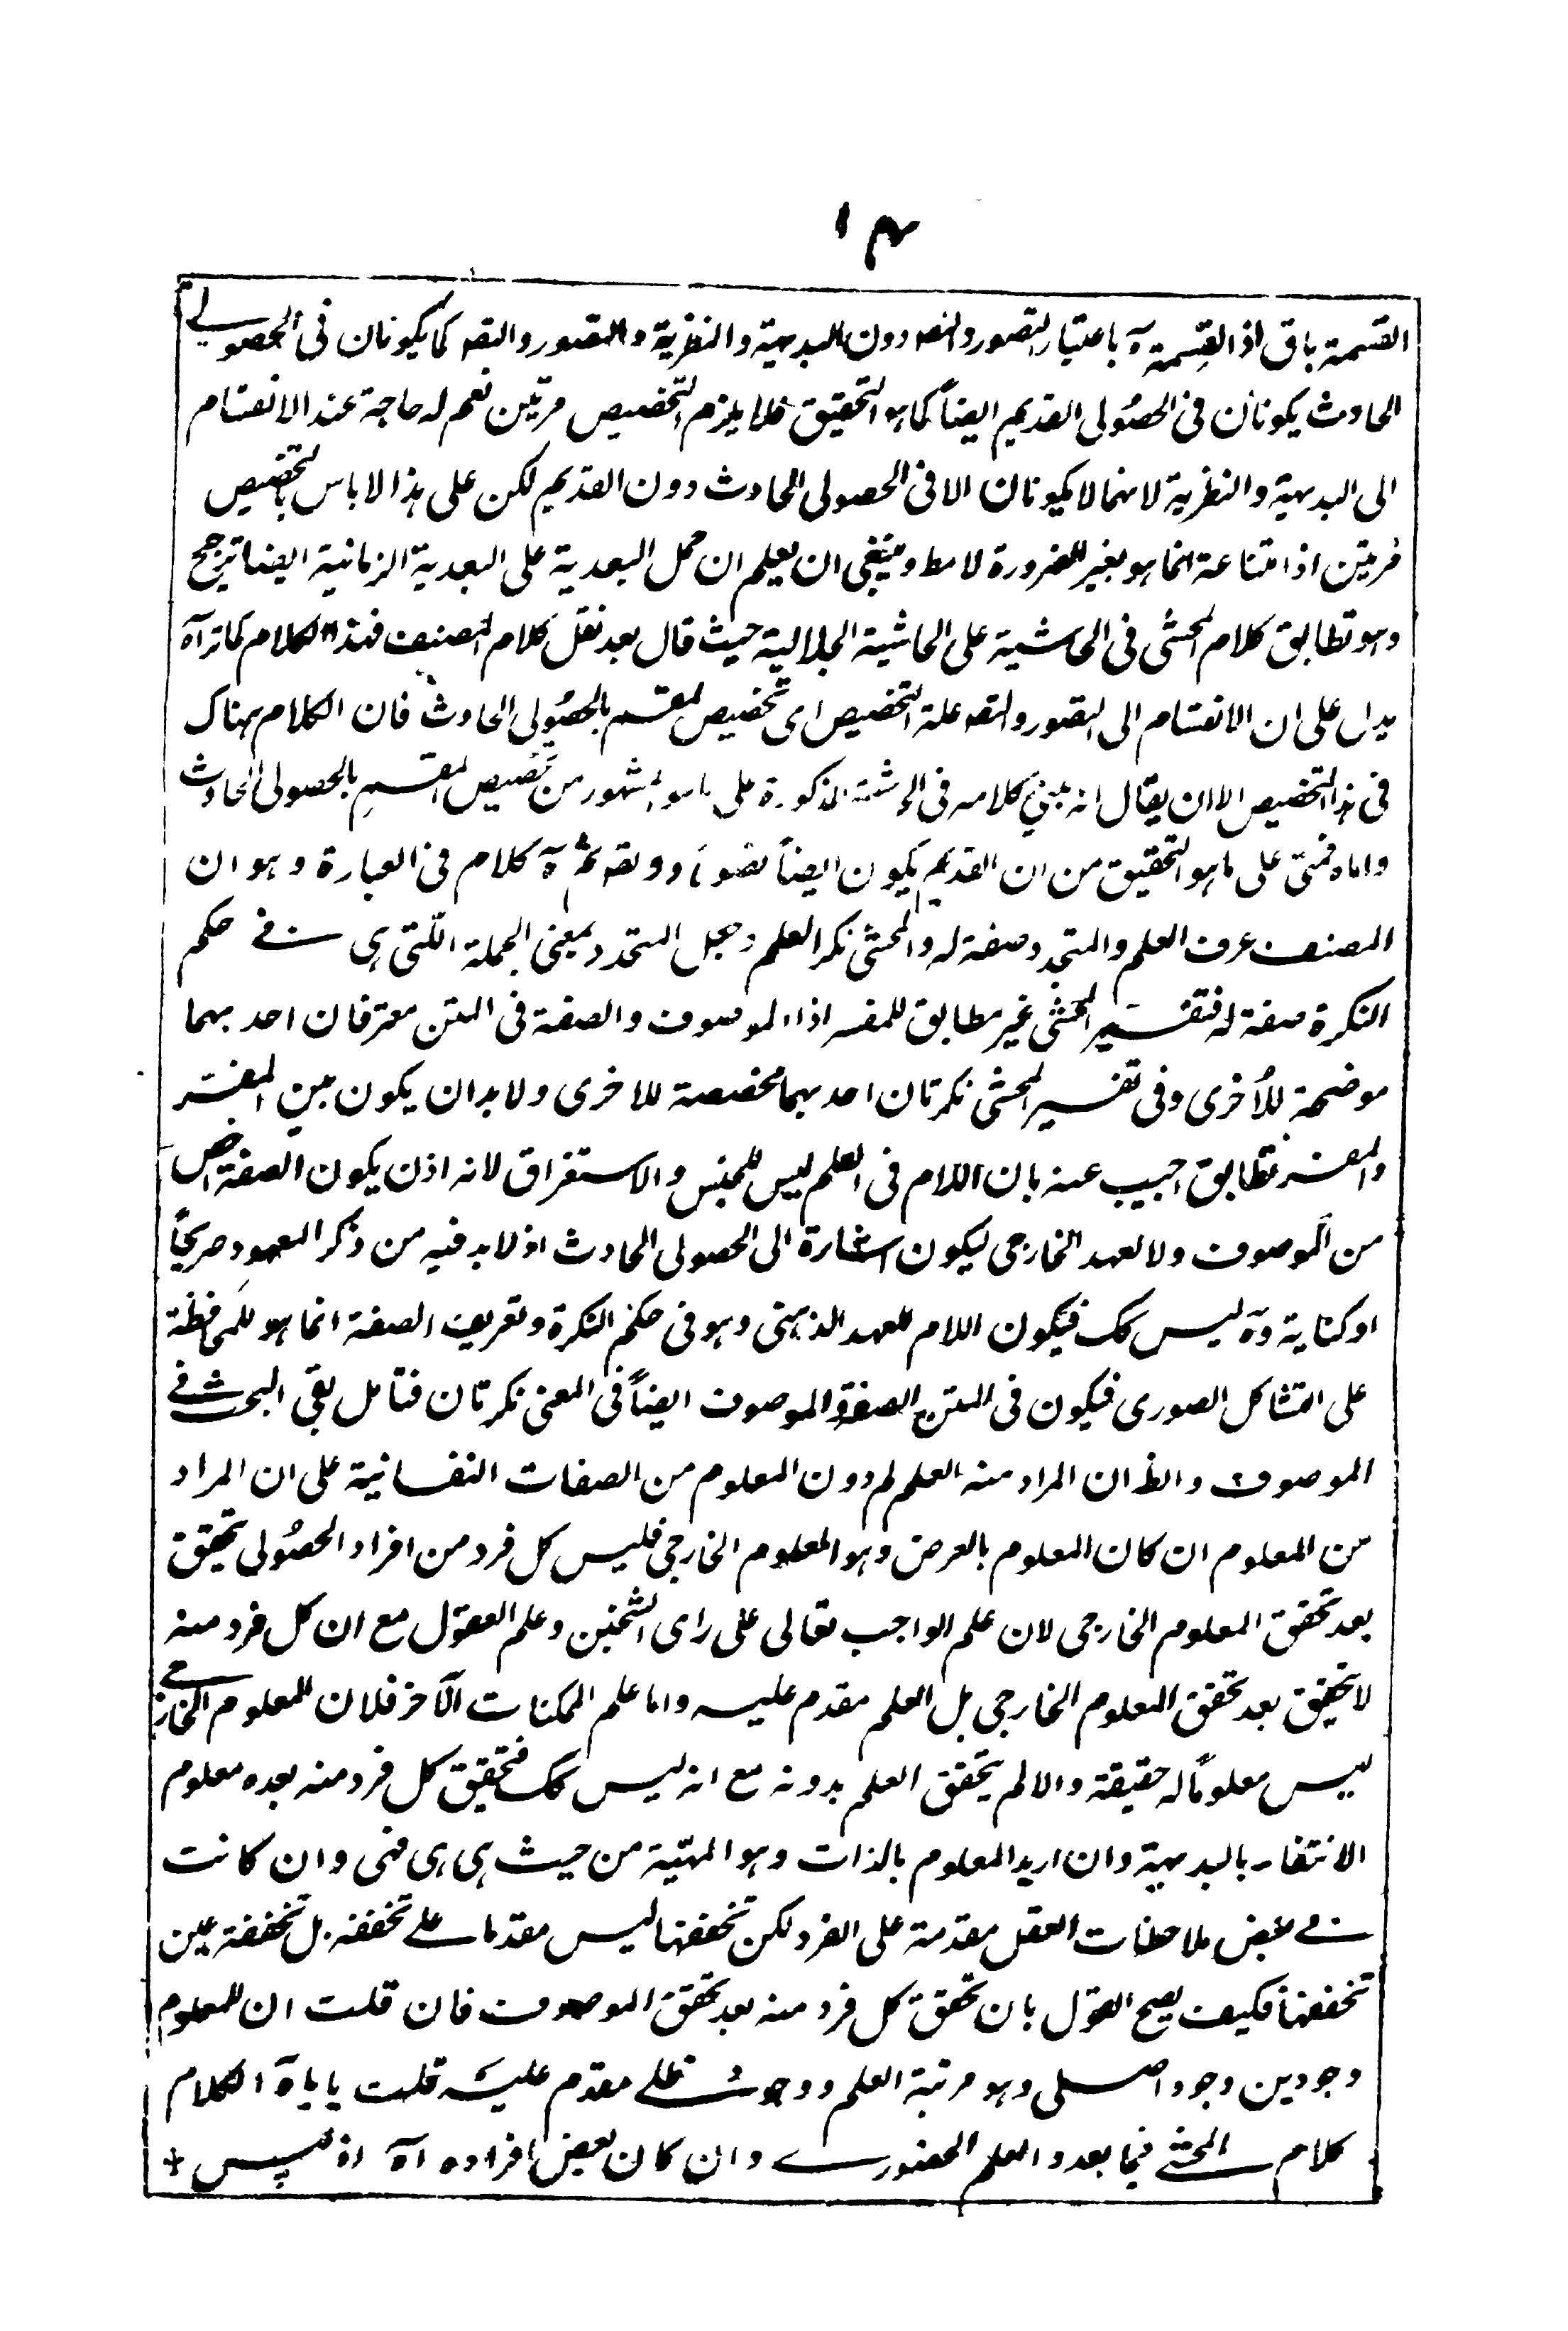 ١٤
القسمة باق اذ القسمة آه باعتبار التصور والتصه دون البديهية والنظرية والتصور والتصه كما يكونان فى الحصولي
الحادث يكونان فى الحصُولى القديم ايضاً كما هو التحقيق فلا يلزم التخصيص مرتين نعم له حاجة عند الانقسام
الى البديهية والنظرية لانهما لا يكونان الا فى الحصولى الحادث دون القديم لكن على هذا لا باس بالتخصيص
مرتين اذ امتناعة انما هو بغير الضرورة لا مط وينبغى ان يعلم ان حمل البعدية على البعدية الزمانية ايضا ترجيح
وهو تطابق كلام المحشى فى الحاشية على الحاشية الجلالية حيث قال بعد نقل كلام المصنف فهذا الكلام كما تراه
يدل على ان الانقسام الى التصور والتصه علة التخصيص اى تخصيص المقسم بالحصُولى الحادث فان الكلام هناك
فى هذا التخصيص الا ان يقال انه بنى كلامه فى الحاشية المذكورة على ما هو المشهور من تخصيص المقسم بالحصولى الحادث
واما ههنا فمبنى على ما هو التحقيق من ان القديم يكون ايضاً تصورا وتصه ثم آه كلام فى العبارة وهو ان
المصنف عرف العلم والمتجدد صفة له والمحشى نكر العلم وجعل المتجدد بمعنى الجملة التى هى في حكم
النكرة صفة له فتفسير المحشى غير مطابق للمفسر اذ الموصوف والصفة فى المتن معرفتان احدهما
موضحة للأخرى وفى تفسير المحشى نكرتان احدهما مخصصة للاخرى ولا بد ان يكون بين المفسِّر
والمفسر تطابق اجيب عنه بان اللام فى العلم ليس للجنس والاستغراق لانه اذن يكون الصفة اخص
من الموصوف ولا لعهد الخارجى ليكون اشارة الى الحصولى الحادث اذ لا بد فيه من ذكر المعهود صريحًا
او كناية وآه ليس كك فيكون اللام للعهد الذهنى وهو فى حكم النكرة وتعريف الصفة انما هو للمحافظة
على التشاكل الصورى فيكون فى المتن الصفة والموصوف ايضاً فى المعنى نكرتان فتامل بقى البحث في
الموصوف والظ ان المراد منه العلم لم دون المعلوم من الصفات النفسانية على ان المراد
من المعلوم ان كان المعلوم بالعرض وهو المعلوم الخارجى فليس كل فرد من افراد الحصُولى تحقق
بعد تحقق المعلوم الخارجى لان علم الواجب تعالى على راى الشيخين وعلم العقول مع ان كل فرد منه
لا يتحقق بعد تحقق المعلوم الخارجى بل العلم مقدم عليه واما علم الممكنات الآخر فلان المعلوم الخارجي
ليس معلومًا له حقيقة والا لم يتحقق العلم بدونه مع انه ليس كك فتحقيق كل فرد منه بعده معلوم
الانتفاء بالبديهية وان اريد المعلوم بالذات وهو المهيّة من حيث هى هى فهى وان كانت
في بعض ملاحظات العقل مقدمة على الفرد لكن تحققها ليس مقدما على تحققه بل تحققه عين
تحققها فكيف يصح القول بان تحقق كل فرد منه بعد تحقق الموصوف فان قلت ان للمعلوم
وجودين وجود اصلى وهو مرتبة العلم ووجود ظلي مقدم عليه قلت ياباه الكلام
كلام المحشي فيما بعد والعلم الحضورے وان كان بعض افراده آه اذ ليس +